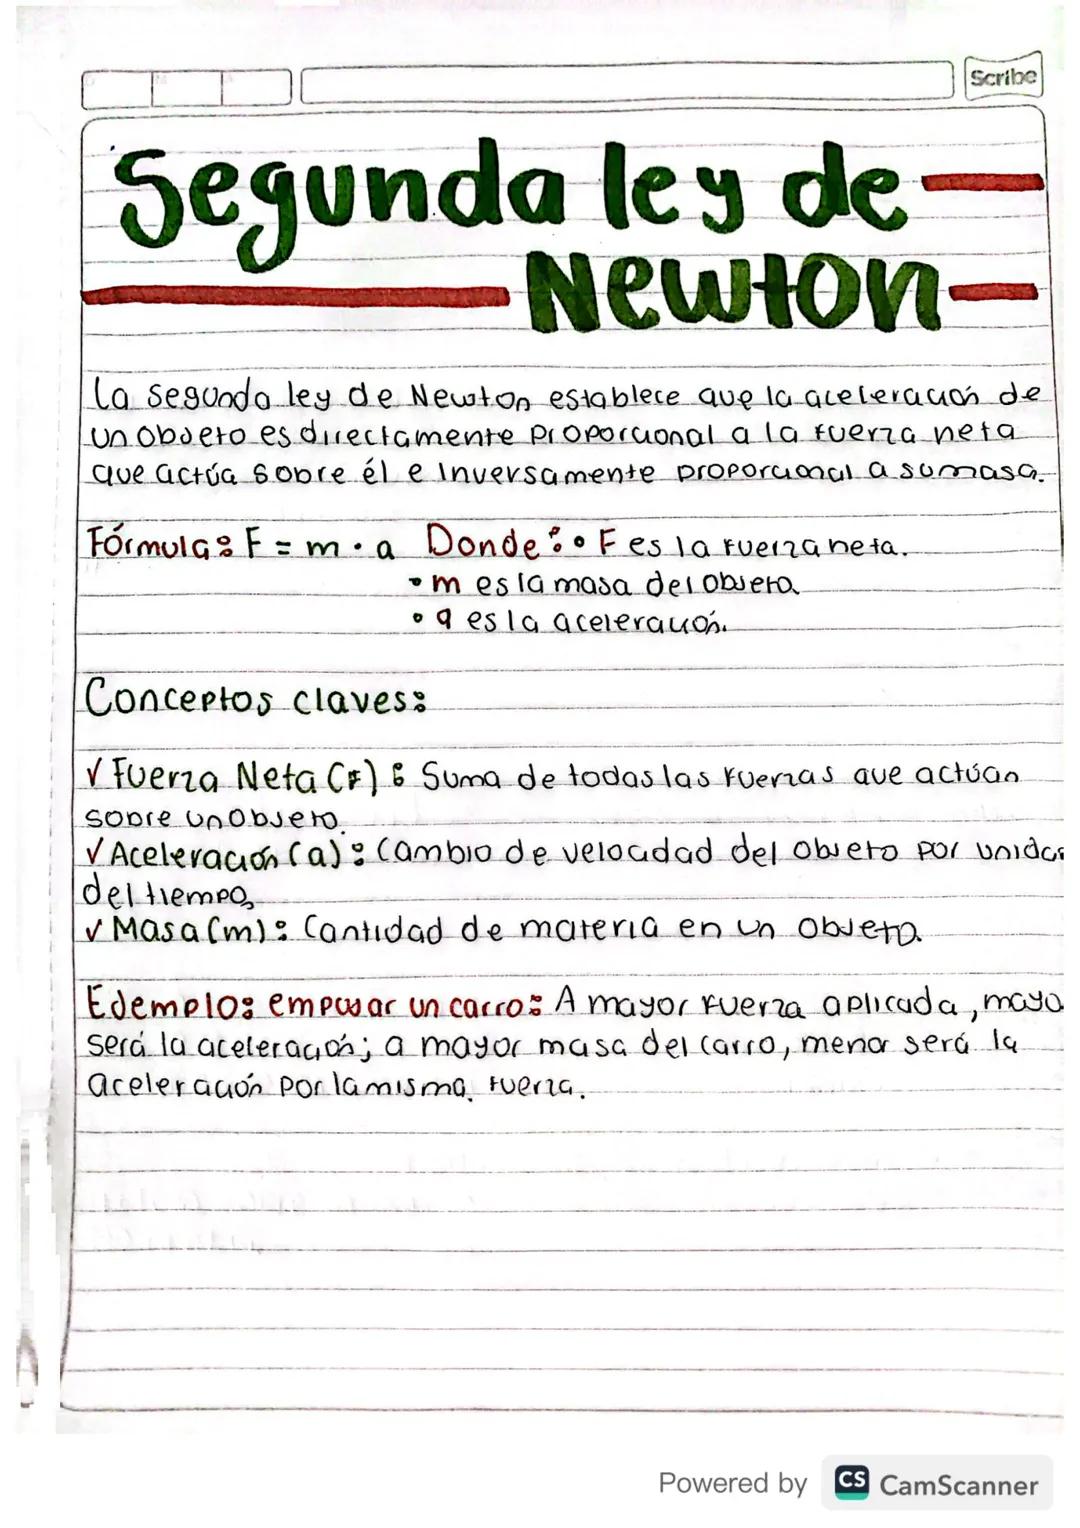 Scribe
Segunda ley de
Newton
La segunda ley de Newton establece que la aceleración de
un objeto es directamente proporcional a la fuerza neta
que actúa sobre él e inversamente proporcional a su masa.
Fórmula: F = m · a Donde: • F es la fuerza neta.
• m es la masa del objeto
• a es la aceleración.
Conceptos claves:
✓ Fuerza Neta (F): Suma de todas las fuerzas que actúan
sobre un objeto.
✓ Aceleración (a): Cambio de velocidad del objeto por unidad
del tiempo.
✓ Masa (m): Cantidad de materia en un objeto.
Ejemplo: empujar un carro: A mayor fuerza aplicada, mayo
será la aceleración; a mayor masa del carro, menor será la
aceleración por la misma fuerza.
Powered by CS CamScanner